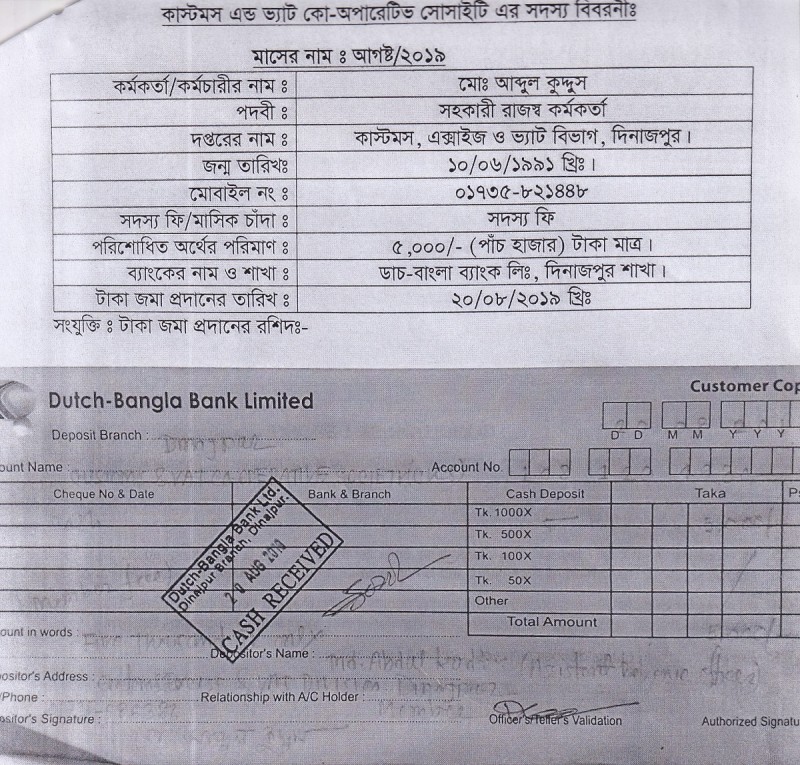 কাস্টমস এন্ড ভ্যাট কো-অপারেটিভ সোসাইটি এর সদস্য বিবরনীঃ
মাসের নাম ঃ আগষ্ট/২০১৯
কর্মকর্তা/কর্মচারীর নাম ঃ মোঃ আব্দুল কুদ্দুস
পদবী ঃ সহকারী রাজস্ব কর্মকর্তা
দপ্তরের নাম ঃ কাস্টমস, এক্সাইজ ও ভ্যাট বিভাগ, দিনাজপুর।
জন্ম তারিখঃ ১০/০৬/১৯৯১ খ্রিঃ।
মোবাইল নং ঃ ০১৭৩৫-৮২১৪৪৮
সদস্য ফি/মাসিক চাঁদা ঃ সদস্য ফি
পরিশোধিত অর্থের পরিমাণ ঃ ৫,০০০/- (পাঁচ হাজার) টাকা মাত্র।
ব্যাংকের নাম ও শাখা ঃ ডাচ-বাংলা ব্যাংক লিঃ, দিনাজপুর শাখা।
টাকা জমা প্রদানের তারিখ ঃ ২০/০৮/২০১৯ খ্রিঃ
সংযুক্তি ঃ টাকা জমা প্রদানের রশিদঃ-
Customer Cop
Dutch-Bangla Bank Limited
Deposit Branch :
D D M M Y Y Y
ount Name : Account No.
Cheque No & Date Bank & Branch Cash Deposit Taka P
Tk. 1000X
Tk. 500X
Tk. 100X
Tk. 50X
Other
Total Amount
Dutch-Bangla Bank Ltd.
Dinajpur Branch, Dinajpur.
20 AUG 2019
CASH RECEIVED
ount in words :
Depositor's Name :
ositor's Address :
/Phone : Relationship with A/C Holder :
ositor's Signature : Officer's/Teller's Validation Authorized Signatu